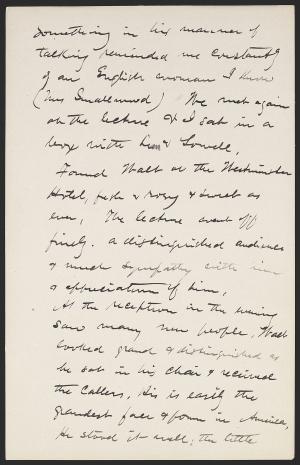 something in his manner of
talking reminded me constantly
of an English woman I knew
(Mrs Smallwood) We met again
at the lecture & I sat in a
box with him & Lowell.
Found Walt at the Westminster
Hotel, fresh & rosy & sweet as
ever, The lecture went off
finely. a distinguished audience
& much sympathy with him
& appreciation of him,
At the reception in the evening
saw many new people, Walt
looked grand & distinguished as
he sat in his chair & received
the callers, His is easily the
grandest face & form in America,
He stood it well; the little